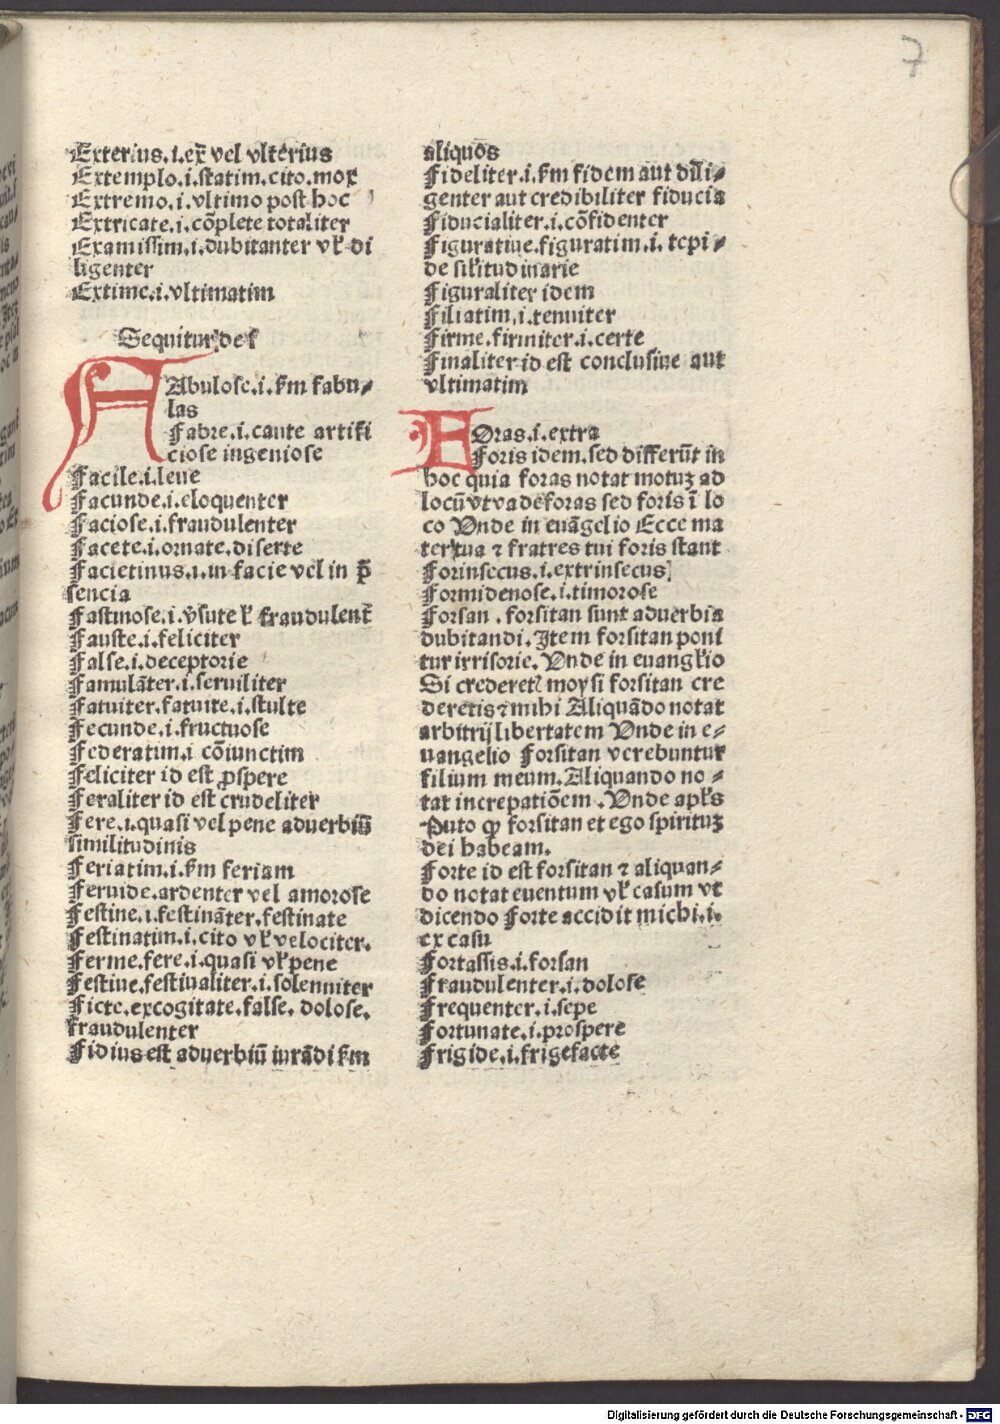 7
Exterius.i.ex̄ vel vlterius
Extemplo.i.statim.cito.mox
Extremo.i.vltimo post hoc
Extricate.i.cōplete totaliter
Examissim.i.dubitanter vƚ di
ligenter
Extime.i.vltimatim
Sequitur de f
Abulose.i.ẜm fabu⸗
las
Fabre.i.caute artifi
ciose ingeniose
Facile.i.leue
Facunde.i.eloquenter
Faciose.i.fraudulenter
Facete.i.ornate.diserte
Facietinus.i.in facie vel in p̄
sencia
Fastinose.i.v̄sute ƚ fraudulent̄
Fauste.i.feliciter
False.i.deceptorie
Famulāter.i.seruiliter
Fatuiter.fatuite.i.stulte
Fecunde.i.fructuose
Federatim.i cōiunctim
Feliciter id est ꝓspere
Feraliter id est crudeliter
Fere.i.quasi vel pene aduerbiū
similitudinis
Feriatim.i.ẜm feriam
Feruide.ardenter vel amorose
Festine.i.festināter.festinate
Festinatim.i.cito vƚ velociter.
Ferme.fere.i.quasi vƚ pene
Festiue.festiualiter.i.solenniter
Ficte.excogitate.false. dolose.
fraudulenter
Fidius est aduerbiū iurādi ẜm
aliquos
Fideliter.i.ẜm fidem aut dili⸗
genter aut credibiliter fiducia
Fiducialiter.i.cōfidenter
Figuratiue.figuratim.i. tepi⸗
de siƚitudinarie
Figuraliter idem
Filiatim.i.tenuiter
Firme.firmiter.i.certe
Finaliter id est conclusiue aut
vltimatim
FOras.i.extra
Foris idem.sed differūt in
hoc quia foras notat motuꝫ ad
locū vt vade foras sed foris ī lo
co Vnde in euāgelio Ecce ma
ter tua ⁊ fratres tui foris stant
Forinsecus.i.extrinsecus
Formidenose.i.timorose
Forsan . forsitan sunt aduerbia
dubitandi. Item forsitan poni
tur irrisorie. Vnde in euangƚio
Si crederet᷑ moysi forsitan cre
deretis ⁊ mihi Aliquādo notat
arbitrij libertatem Vnde in e⸗
uangelio Forsitan verebuntur
filium meum. Aliquando no⸗
tat increpatiōem . Vnde apƚs
Puto ꝙ forsitan et ego spirituꝫ
dei habeam.
Forte id est forsitan ⁊ aliquan⸗
do notat euentum vƚ casum vt
dicendo Forte accidit michi.i.
ex casu
Fortassis.i.forsan
Fraudulenter.i.dolose
Frequenter.i.sepe
Fortunate.i.prospere
Frigide.i.frigefacte
Digitalisierung gefördert durch die Deutsche Forschungsgemeinschaft - DFG